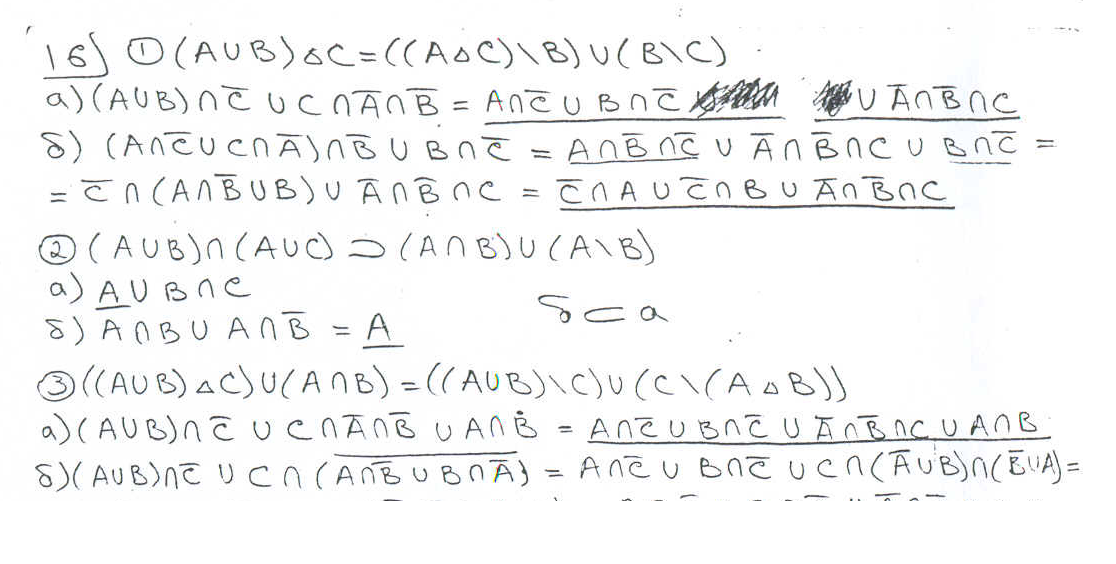 16) ① (A∪B)△C=((A△C)\B)∪(B\C)
а) (A∪B)∩C̅ ∪ C∩A̅∩B̅ = A∩C̅ ∪ B∩C̅ ∪ A̅∩B̅∩C
б) (A∩C̅∪C∩A̅)∩B̅ ∪ B∩C̅ = A∩B̅∩C̅ ∪ A̅∩B̅∩C ∪ B∩C̅ =
= C̅∩(A∩B̅∪B)∪ A̅∩B̅∩C = C̅∩A∪C̅∩B∪A̅∩B̅∩C
② (A∪B)∩(A∪C) ⊃ (A∩B)∪(A\B)
а) A∪B∩C
б) A∩B∪A∩B̅ = A
б ⊂ а
③ ((A∪B)△C)∪(A∩B)=((A∪B)\C)∪(C\(A△B))
а) (A∪B)∩C̅ ∪ C∩A̅∩B̅ ∪ A∩B = A∩C̅∪B∩C̅∪A̅∩B̅∩C∪A∩B
б) (A∪B)∩C̅ ∪ C∩(A̅∩̅B̅̅ ̅∪̅ ̅B̅∩̅A̅̅) = A∩C̅∪B∩C̅∪C∩(A̅∪B)∩(B̅∪A)=